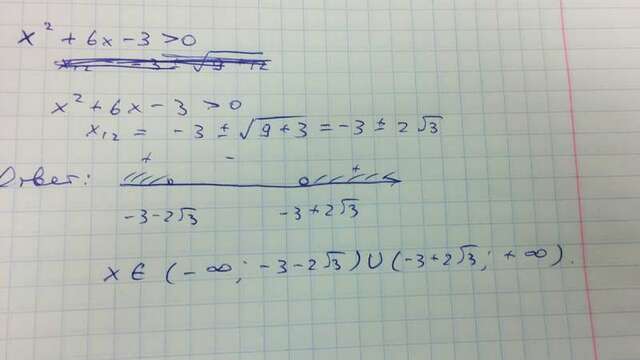 x² + 6x - 3 > 0
x² + 6x - 3 > 0
x₁₂ = -3 ± √(9+3) = -3 ± 2√3
+ - +
Ответ:
-3-2√3 -3+2√3
x ∈ (-∞; -3-2√3) ∪ (-3+2√3; +∞).